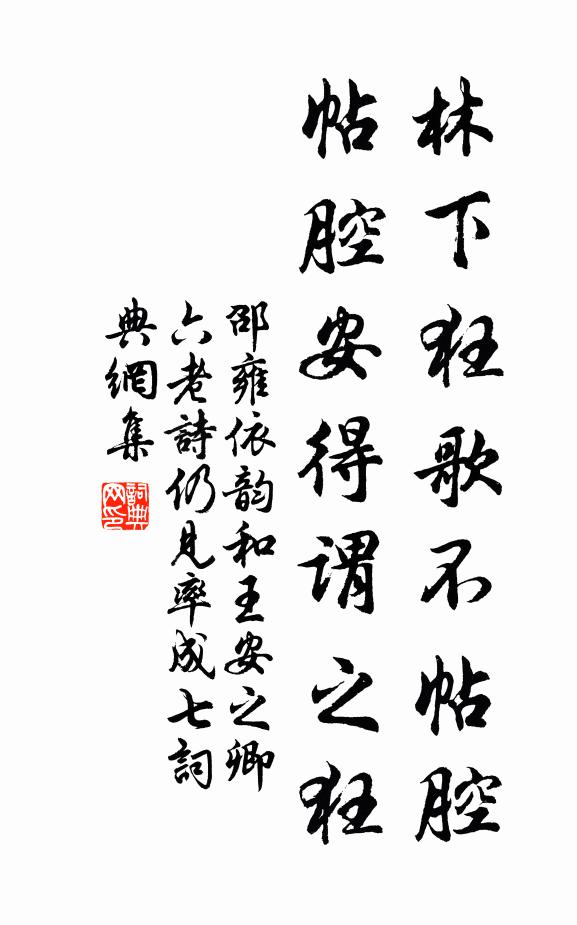 林下狂歌不帖腔
帖腔安得謂之狂
邵雍依韵和王安之卿
六老詩仍見率成七詞
典網集
詞典網印